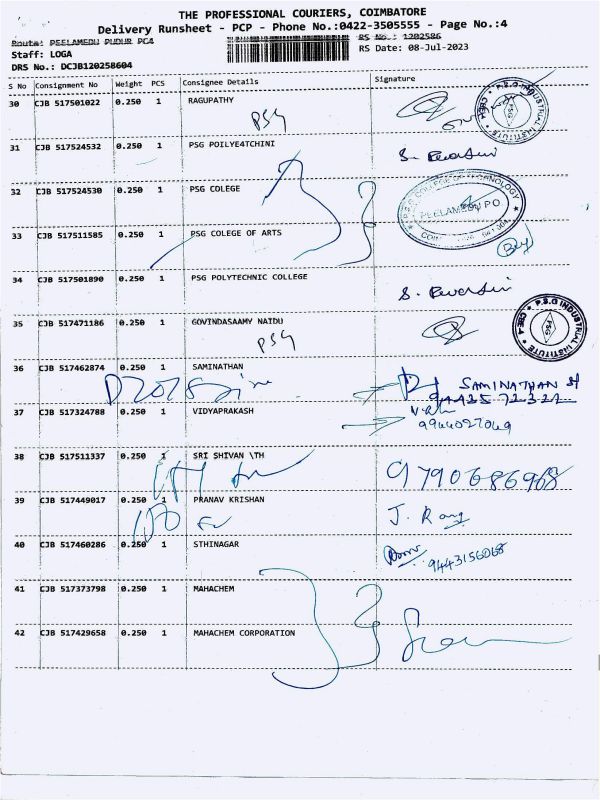 THE PROFESSIONAL COURIERS, COIMBATORE
Delivery Runsheet - PCP - Phone No.:0422-3505555 - Page No.:4
Route: PEELAMEDU PUDUR PC4
RS No.: 1202586
Staff: LOGA
RS Date: 08-Jul-2023
DRS No.: DCJB120258604
S No Consignment No Weight PCS Consignee Details Signature
30 CJB 517501022 0.250 1 RAGUPATHY
PSG
P.S.G INDUSTRIAL INSTITUTE CBE-4
31 CJB 517524532 0.250 1 PSG POILYE4TCHINI
32 CJB 517524530 0.250 1 PSG COLEGE
P.S.G COLLEGE OF TECHNOLOGY
PEELAMEDU PO.
33 CJB 517511585 0.250 1 PSG COLEGE OF ARTS
34 CJB 517501890 0.250 1 PSG POLYTECHNIC COLLEGE
35 CJB 517471186 0.250 1 GOVINDASAAMY NAIDU
PSG
P.S.G INDUSTRIAL INSTITUTE CBE-4
PSG
36 CJB 517462874 0.250 1 SAMINATHAN
SAMINATHAN
37 CJB 517324788 0.250 1 VIDYAPRAKASH
9944027049
38 CJB 517511337 0.250 1 SRI SHIVAN \TH
9790686968
39 CJB 517449017 0.250 1 PRANAV KRISHAN
40 CJB 517460286 0.250 1 STHINAGAR
9443156068
41 CJB 517373798 0.250 1 MAHACHEM
42 CJB 517429658 0.250 1 MAHACHEM CORPORATION